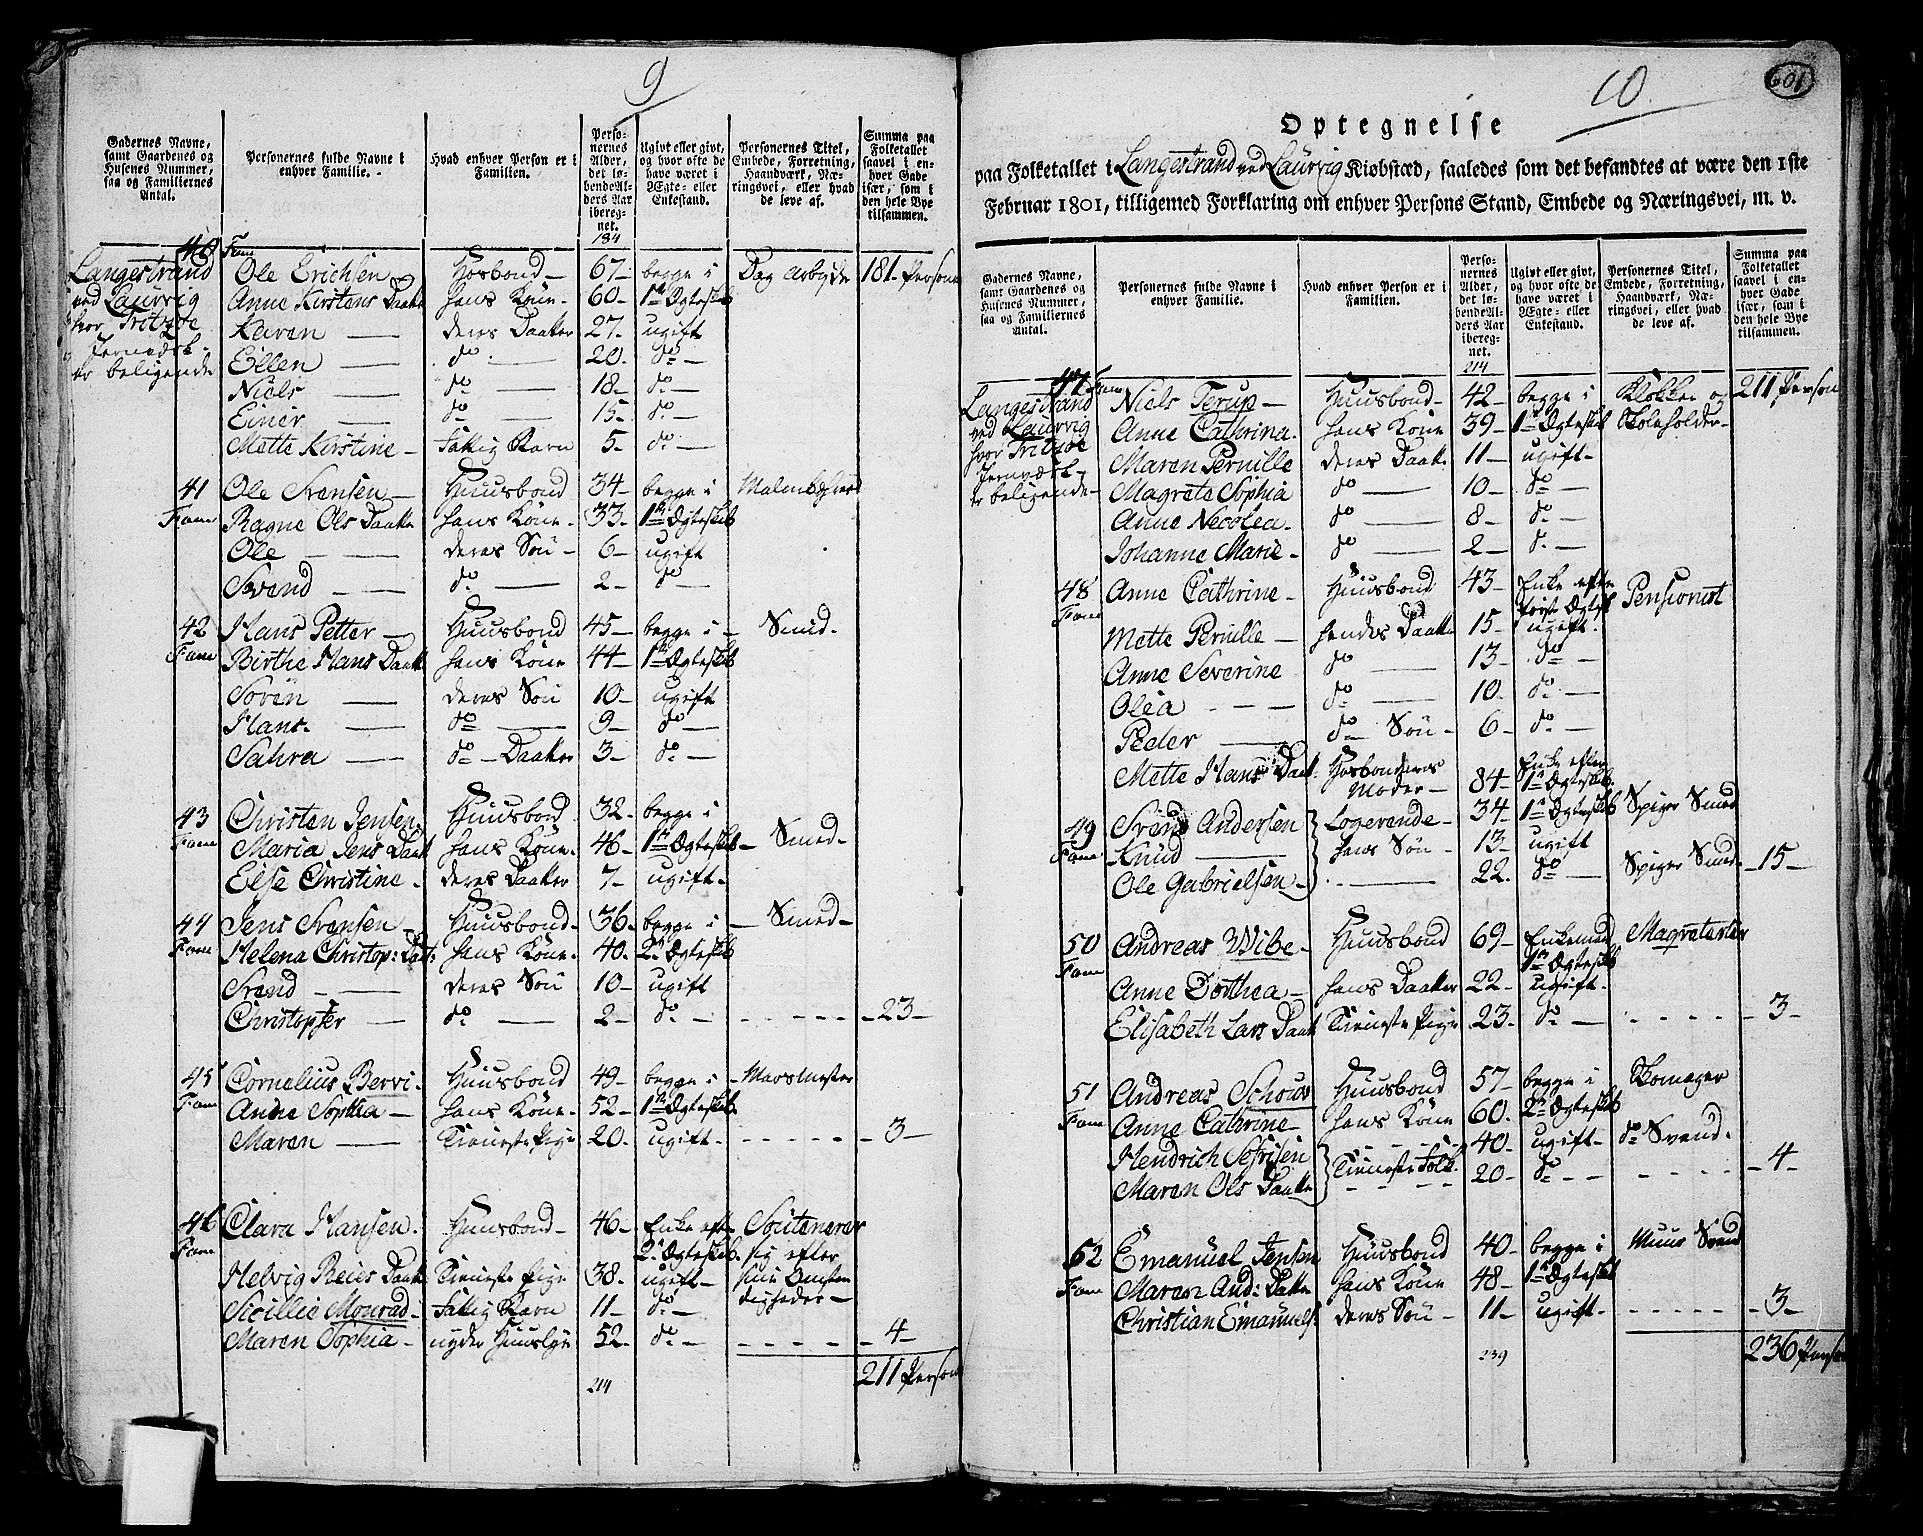 9
Gadernes Navne, samt Gaardenes og Husenes Nummer, saa og Familiernes Antal.
Personernes fulde Navne i enhver Familie.
Hvad enhver Person er i Familien.
Personernes Alder, det løbende Alders Aar iberegnet.
Ugivt eller givt, og hvor ofte de have været i Ægte- eller Enkestand.
Personernes Titel, Embede, Forretning, Haandværk, Næringsvei, eller hvad de leve af.
Summa paa Folketallet saavel i enhver Gade især, som i den hele Bye tilsammen.
184
40 Fam
Langestrand Ole Erichsen Hosbond 67 begge i Dag arbyde 181 Person
ved Laurvig Anne Kirstans Daatt hans Kone 60 1te Ægteskb
hvor Fritzøe Karen deres Daatter 27 ugift
Jernverk Ellen do 20 do
er beligende Niels do 18 do
Einer do 15 do
Mette Kirstine Fattig Barn 5 do
41 Ole Svensen Huusbond 34 begge i
Fam Ragne Ols Daatte hans Kone 33 1te Ægteskb
Ole deres Søn 6 ugift
Svend do 2 do
42 Hans Petter Huusbond 45 begge i Smed
Fam Birthe Hans Daatt hans Kone 44 1te Ægteskb
Sören deres Søn 10 ugift
Hans do 9 do
Sahra do Daatter 3 do
43 Christen Jensen Huusbond 32 begge i
Fam Maria Jens Daatt hans Kone 46 1te Ægteskb Smed
Else Christine deres Daatter 7 ugift
44 Jens Svensen Huusbond 36 begge i Smed
Fam Helena Christop: Datt: hans Kone 40 2t Ægteskb
Svend deres Søn 10 ugift
Christopfer do 2 do 23
45 Cornelius Bervi Huusbond 49 begge i Masmester
Fam Anne Sophia hans Kone 52 1te Ægteskb
Maren Tieneste Pige 20 ugift 3
46 Clara Hansen Huusbond 46 Enke eft Soutenerer
Fam 2t Ægteskb sig efter
Helvig Reiers Daatt Tieneste Pige 38 ugift sine Omsten
Sicillie Monrad Fattig Barn 11 do digheder
Maren Sophia nyder Huuslye 52 do 4
211 Person
214
10
601
Optegnelse
paa Folketallet i Langestrand ved Laurvig Kiøbstæd, saaledes som det befandtes at være den 1ste
Februar 1801, tilligemed Forklaring om enhver Persons Stand, Embede og Næringsvei, m. v.
Gadernes Navne, samt Gaardenes og Husenes Nummer, saa og Familiernes Antal.
Personernes fulde Navne i enhver Familie.
Hvad enhver Person er i Familien.
Personernes Alder, det løbende Alders Aar iberegnet.
Ugivt eller givt, og hvor ofte de have været i Ægte- eller Enkestand.
Personernes Titel, Embede, Forretning, Haandværk, Næringsvei, eller hvad de leve af.
Summa paa Folketallet saavel i enhver Gade især, som i den hele Bye tilsammen.
214
47 Fam
Langestrand Niels Terup Huusbond 42 begge i Klokker og 211 Person
ved Laurvig Anne Cathrina hans Kone 39 1te Ægteskb Skoleholder
hvor Fritzøe Maren Pernille deres Daatt 11 ugift
Jernverk Magrete Sophia do 10 do
er beligende Anne Necolea do 8 do
Johanne Marie do 2 do
48 Anne Cathrine Huusbond 43 Enke efter Pensionist
Fam først Ægtsk
Mette Pernille hendes Daatter 15 ugift
Anne Severine do 13 do
Olea do 10 do
Peder do Søn 6 do
Mette Hans Daatt Hosbondens Moder 84 Enke efter 1te Ægteskb
49 Svend Andersen Logerende 34 1te Ægteskb Spiger Smed
Fam Knud hans Søn 13 ugift
Ole Gabrielsen 22 do Spiger Smed 15
50 Andreas Wibe Huusbond 69 Enkemand
Fam 1te Ægteskb
Anne Dorthea hans Daatter 22 ugift
Elisabeth Lars Daatt Tieneste Pige 23 do 3
51 Andreas Schouw Huusbond 57 begge i Skomager
Fam Anne Cathrine hans Kone 60 2t Ægteskb
Hendrich Sefrisen Tieneste Folk 40 ugift do Svend
Maren Ols Daatte 20 do 4
52 Emanuel Jensen Huusbond 40 begge i Muur Svend
Fam Maren And: Datte hans Kone 48 1te Ægteskb
Christian Emanuels: deres Søn 11 ugift 3
239 236 Person